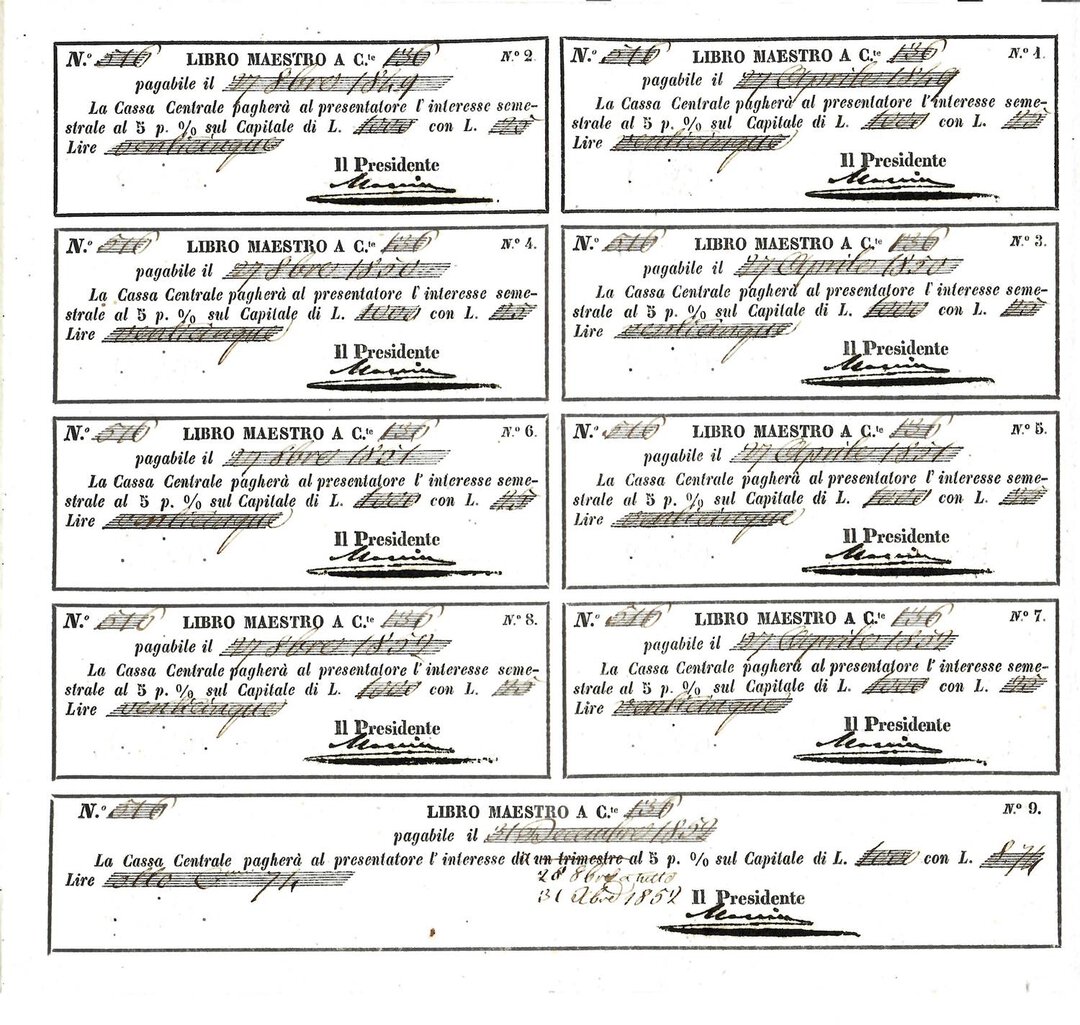 N.º 516 LIBRO MAESTRO A C.te 136 N.º 2.
pagabile il 27 8bre 1849
La Cassa Centrale pagherà al presentatore l'interesse seme-
strale al 5 p. % sul Capitale di L. 1000 con L. 25
Lire venticinque
Il Presidente
N.º 516 LIBRO MAESTRO A C.te 136 N.º 1.
pagabile il 27 Aprile 1849
La Cassa Centrale pagherà al presentatore l'interesse seme-
strale al 5 p. % sul Capitale di L. 1000 con L. 25
Lire venticinque
Il Presidente
N.º 516 LIBRO MAESTRO A C.te 136 N.º 4.
pagabile il 27 8bre 1850
La Cassa Centrale pagherà al presentatore l'interesse seme-
strale al 5 p. % sul Capitale di L. 1000 con L. 25
Lire venticinque
Il Presidente
N.º 516 LIBRO MAESTRO A C.te 136 N.º 3.
pagabile il 27 Aprile 1850
La Cassa Centrale pagherà al presentatore l'interesse seme-
strale al 5 p. % sul Capitale di L. 1000 con L. 25
Lire venticinque
Il Presidente
N.º 516 LIBRO MAESTRO A C.te 136 N.º 6.
pagabile il 27 8bre 1851
La Cassa Centrale pagherà al presentatore l'interesse seme-
strale al 5 p. % sul Capitale di L. 1000 con L. 25
Lire venticinque
Il Presidente
N.º 516 LIBRO MAESTRO A C.te 136 N.º 5.
pagabile il 27 Aprile 1851
La Cassa Centrale pagherà al presentatore l'interesse seme-
strale al 5 p. % sul Capitale di L. 1000 con L. 25
Lire venticinque
Il Presidente
N.º 516 LIBRO MAESTRO A C.te 136 N.º 8.
pagabile il 27 8bre 1852
La Cassa Centrale pagherà al presentatore l'interesse seme-
strale al 5 p. % sul Capitale di L. 1000 con L. 25
Lire venticinque
Il Presidente
N.º 516 LIBRO MAESTRO A C.te 136 N.º 7.
pagabile il 27 Aprile 1852
La Cassa Centrale pagherà al presentatore l'interesse seme-
strale al 5 p. % sul Capitale di L. 1000 con L. 25
Lire venticinque
Il Presidente
N.º 516 LIBRO MAESTRO A C.te 136 N.º 9.
pagabile il 31 Decembre 1852
La Cassa Centrale pagherà al presentatore l'interesse di un trimestre al 5 p. % sul Capitale di L. 1000 con L. 8 74
Lire otto 74
28 8bre a tutto
31 Xbre 1852 Il Presidente